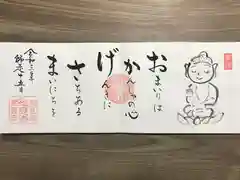 おまいりは
かんしゃの心
げんきに
さちある
まいにちを
令和三年